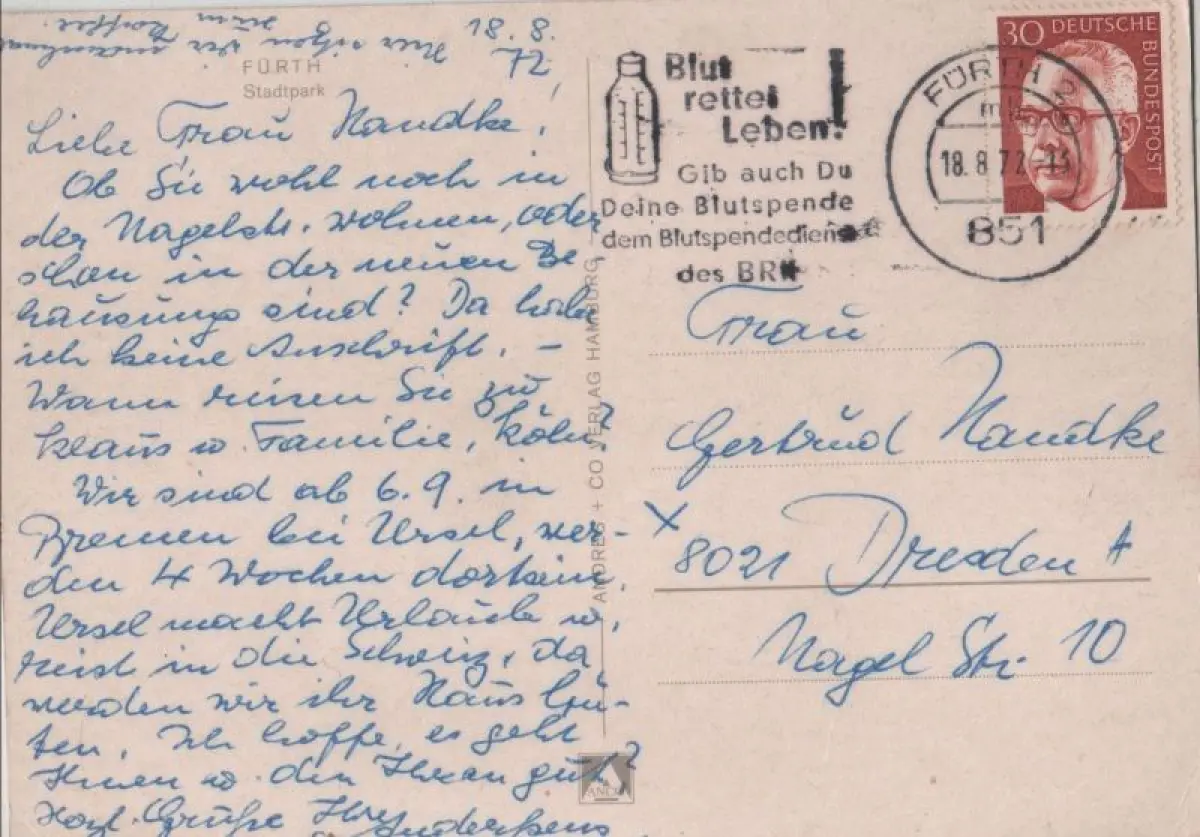 18. 8.
72,
Hier sitzen wir
zum
FÜRTH
Stadtpark
Liebe Frau Handke,
Ob Sie wohl noch in
der Nagelstr. wohnen, oder
schon in der neuen Be
hausung sind? Da habe
ich keine Anschrift. –
Wann reisen Sie zu
Klaus u. Familie, Köln?
Wir sind ab 6.9. in
Bremen bei Ursel, wer-
den 4 Wochen dort sein,
Ursel macht Urlaub u.
reist in die Schweiz, da
werden wir ihr Haus hü-
ten. Ich hoffe, es geht
Ihnen u. den Ihren gut?
Herzl. Grüße Ihre
ANDRES + CO VERLAG HAMBURG
ANCO
Blut
rettet
Leben!
Gib auch Du
Deine Blutspende
dem Blutspendedienst
des BRK
FÜRTH 2
18. 8. 72-13
851
30 DEUTSCHE
BUNDESPOST
Frau
Gertrud Handke
X 8021 Dresden A
Nagel Str. 10